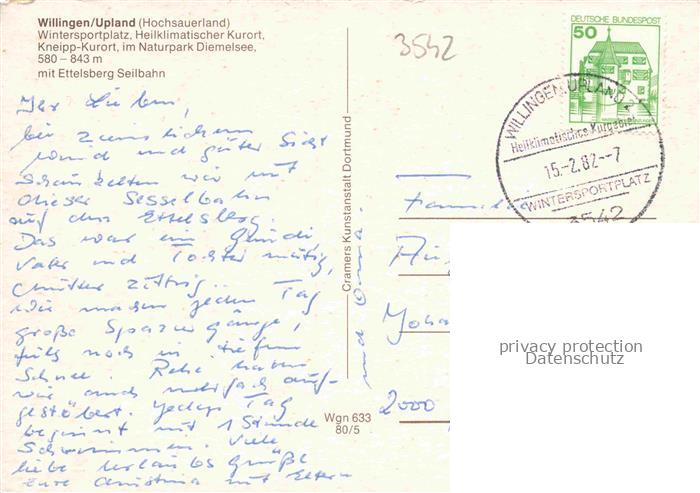 Willingen/Upland (Hochsauerland)
Wintersportplatz, Heilklimatischer Kurort,
Kneipp-Kurort, im Naturpark Diemelsee,
580 – 843 m
mit Ettelsberg Seilbahn
3542
DEUTSCHE BUNDESPOST
50
WILLINGEN, UPLAND 2
Heilklimatisches Kurgebiet
15.-2.82--7
WINTERSPORTPLATZ
3542
Ihr Lieben,
bei ziemlichem
Wind und guter Sicht
schaukelten wir mit
dieser Sesselbahn
auf den Ettelsberg.
Das war ein
Vater und Tochter mutig,
Mutter zittrig..
Wir machen jeden Tag
große Spaziergänge,
teils noch im tiefen
Schnee. Rehe haben
wir auch mehrfach auf-
gestöbert. Jeder Tag
beginnt mit 1 Stunde
Schwimmen. Viele
liebe Urlaubsgrüße
Eure Christina mit Eltern
und Oma.
Cramers Kunstanstalt Dortmund
Wgn 633
80/5
Familie
Joha
2000
privacy protection
Datenschutz